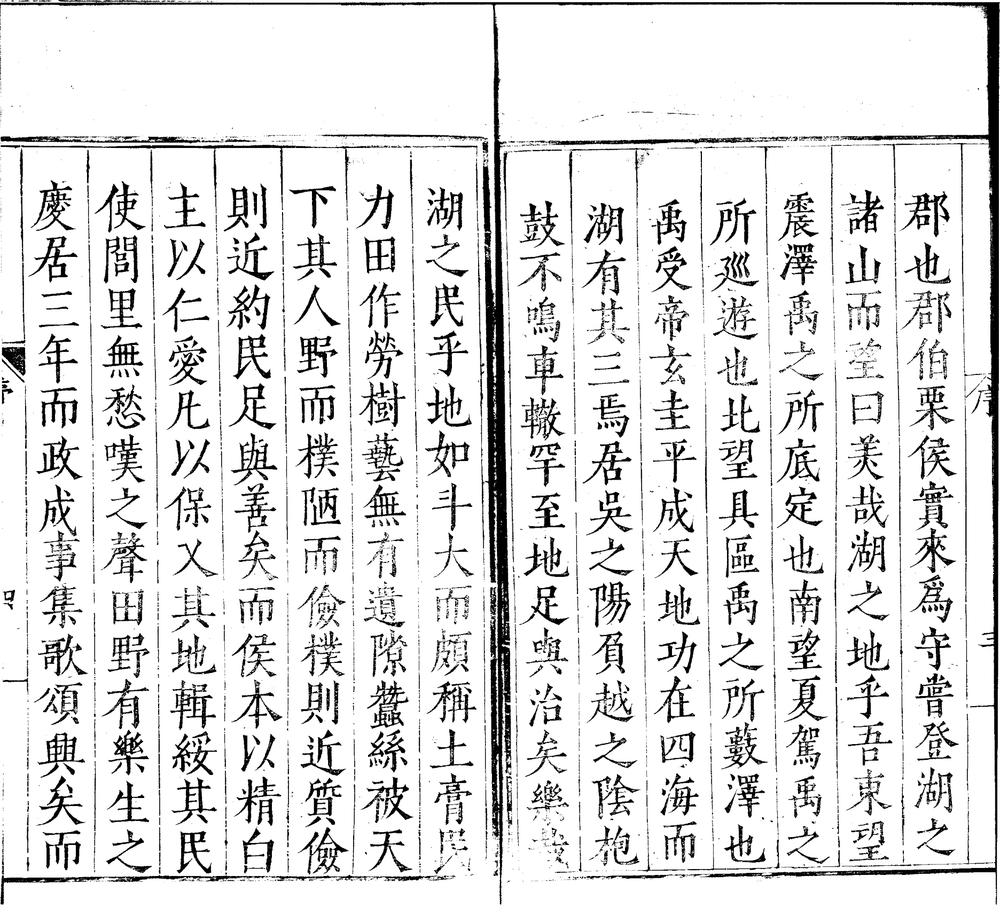 序
三
郡也郡伯栗侯實來爲守嘗登湖之
諸山而望曰美哉湖之地乎吾東望
震澤禹之所底定也南望夏駕禹之
所巡遊也北望具區禹之所藪澤也
禹受帝玄圭平成天地功在四海而
湖有其三焉居吳之陽負越之陰枹
鼓不鳴車轍罕至地足與治矣樂哉
湖之民乎地如斗大而頗稱土膏民
力田作勞樹藝無有遺隙蠶絲被天
下其人野而樸陋而儉樸則近質儉
則近約民足與善矣而侯本以精白
主以仁愛凡以保乂其地輯綏其民
使閭里無愁嘆之聲田野有樂生之
慶居三年而政成事集歌頌興矣而
序
四